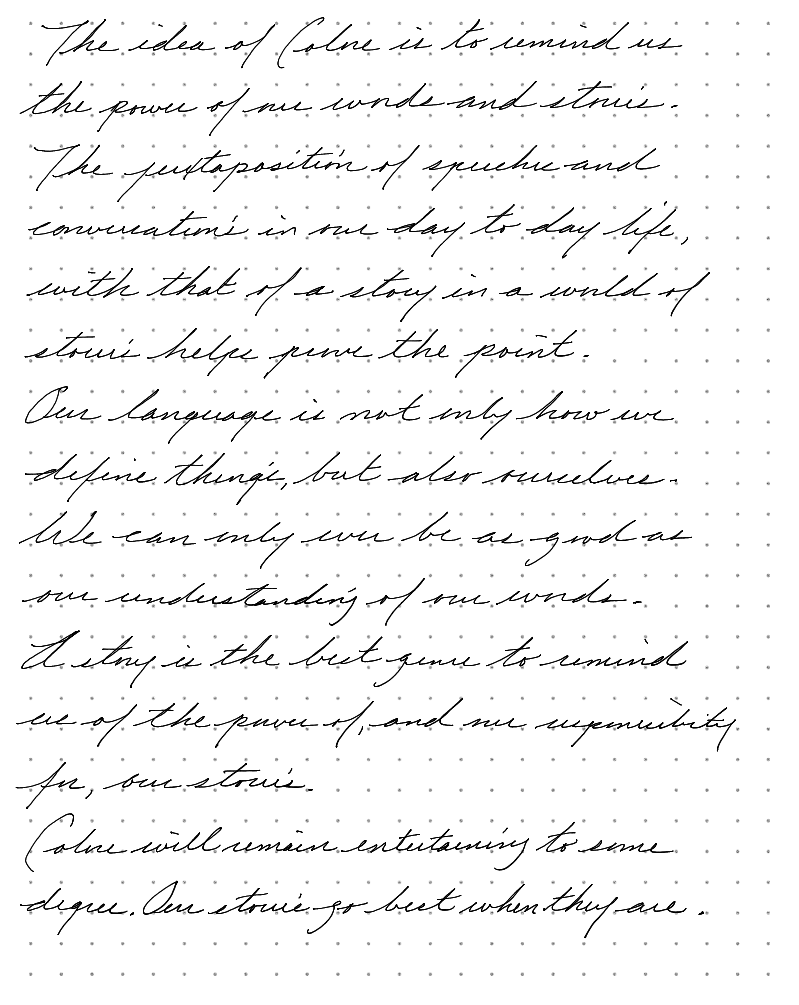 The idea of Colne is to remind us
the power of our words and stories.
The juxtaposition of speeches and
conversations in our day to day life,
with that of a story in a world of
stories helps prove the point.
Our language is not only how we
define things, but also ourselves.
We can only ever be as good as
our understanding of our words.
A story is the best genre to remind
us of the power of, and our responsibility
for, our stories.
will remain entertaining to some
degree. Our stories go best when they are.